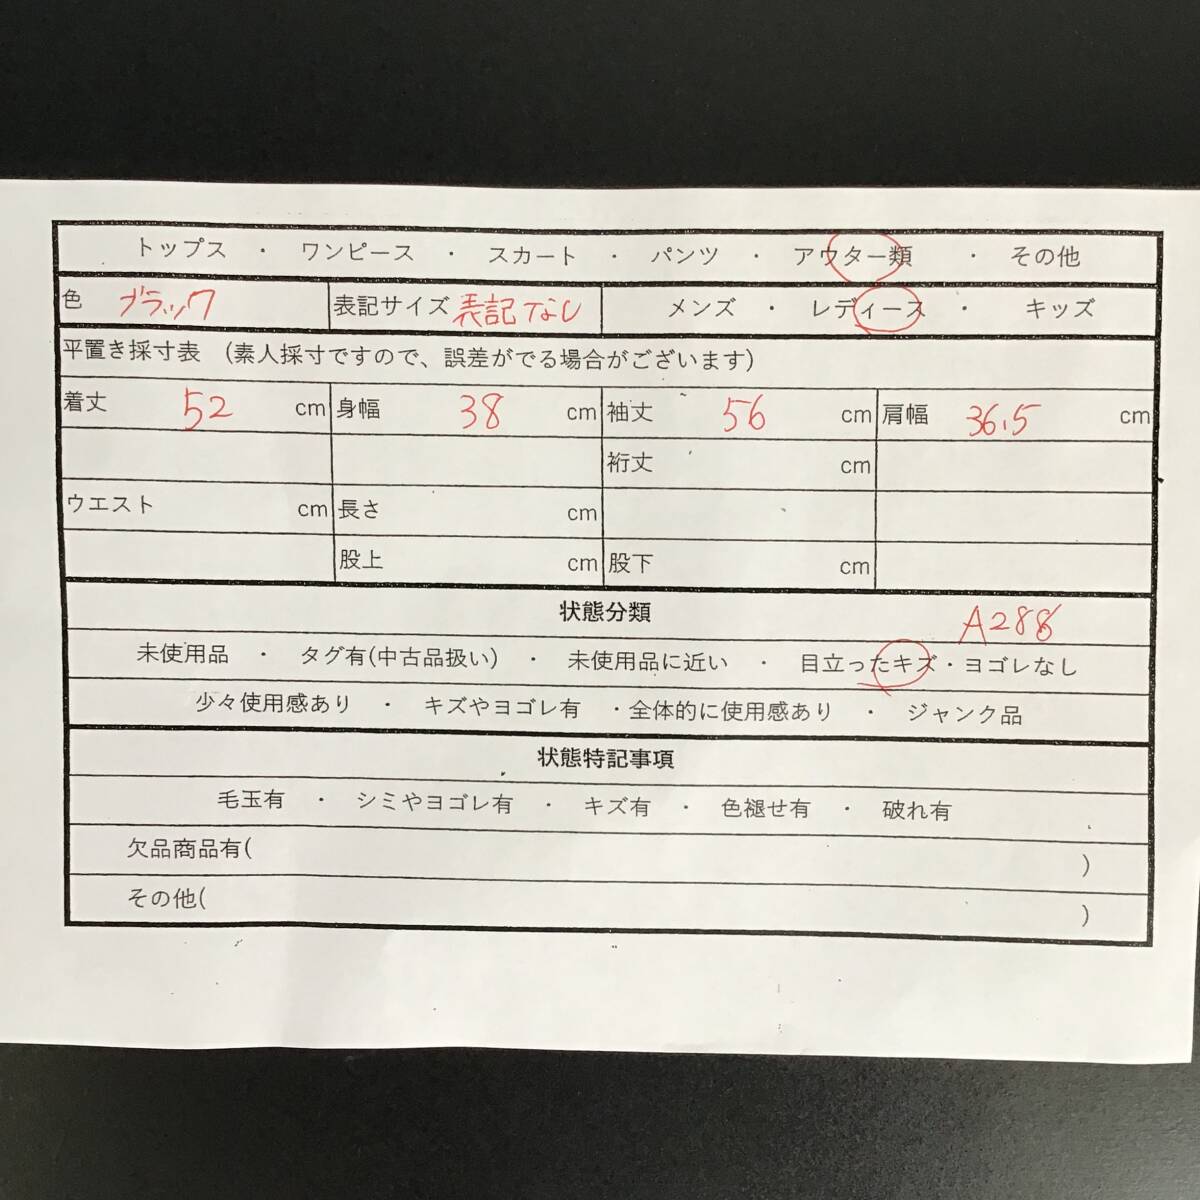 トップス ・ ワンピース ・ スカート ・ パンツ ・ アウター類 ・ その他
色 ブラック 表記サイズ 表記なし メンズ ・ レディース ・ キッズ
平置き採寸表 (素人採寸ですので、誤差がでる場合がございます)
着丈 52 cm 身幅 38 cm 袖丈 56 cm 肩幅 36.5 cm
裄丈 cm
ウエスト cm 長さ cm
股上 cm 股下 cm
状態分類 A288
未使用品 ・ タグ有(中古品扱い) ・ 未使用品に近い ・ 目立ったキズ・ヨゴレなし
少々使用感あり ・ キズやヨゴレ有 ・全体的に使用感あり ・ ジャンク品
状態特記事項
毛玉有 ・ シミやヨゴレ有 ・ キズ有 ・ 色褪せ有 ・ 破れ有
欠品商品有( )
その他( )